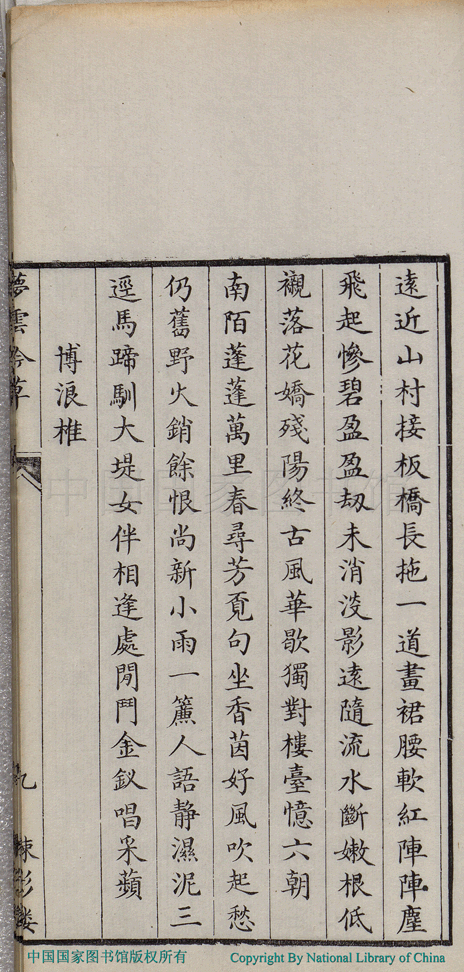 遠近山村接板橋長拖一道畫裙腰軟紅陣陣塵
飛起慘碧盈盈刼未消沒影遠隨流水斷嫩根低
襯落花嬌殘陽終古風華歇獨對樓臺憶六朝
南陌蓬蓬萬里春尋芳覓句坐香茵好風吹起愁
仍舊野火銷餘恨尚新小雨一簾人語静濕泥三
逕馬蹄馴大堤女伴相逢處閒鬥金釵唱采蘋
博浪椎
夢雲吟草
九
棟彩
中国国家图书馆
中国国家图书馆版权所有
Copyright By National Library of China